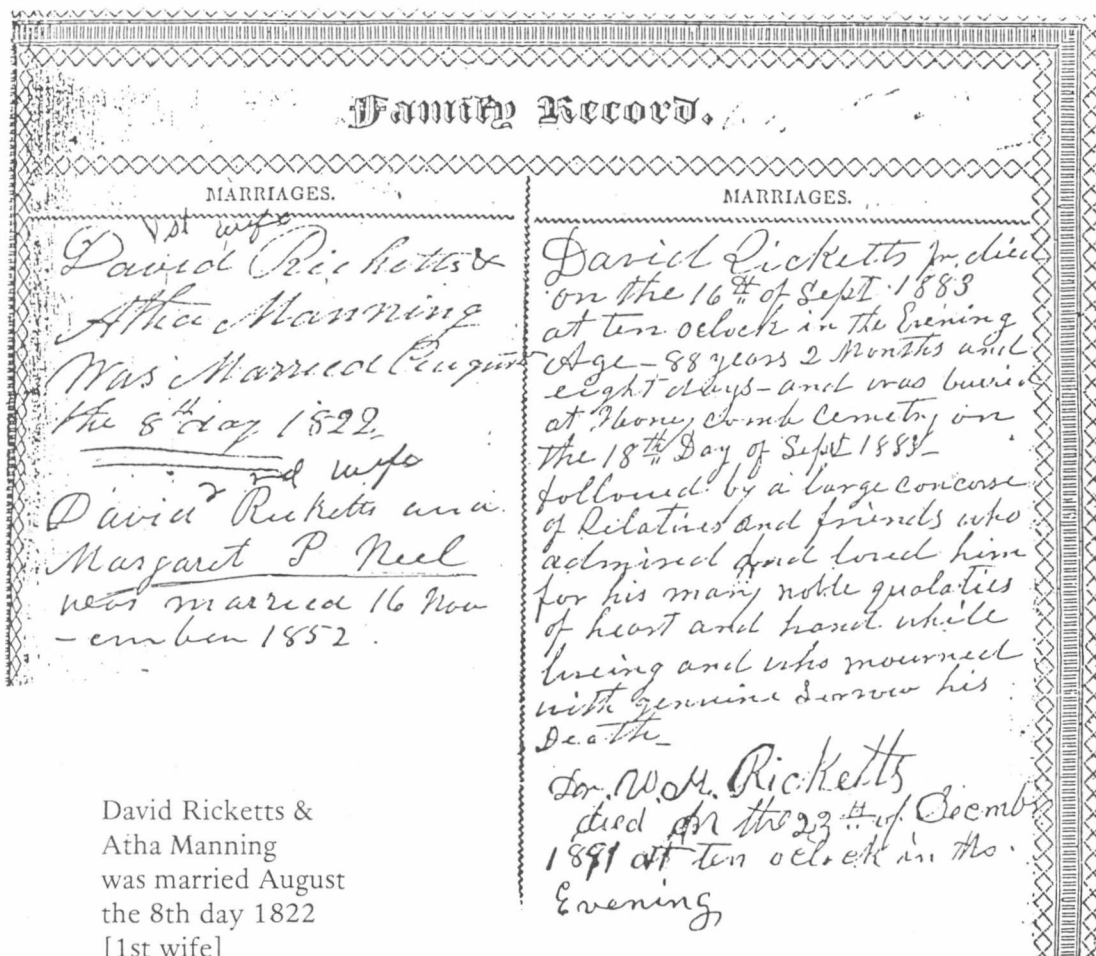 Family Record.
MARRIAGES.
1st wife
David Ricketts &
Atha Manning
Was Married August
the 8th day 1822
2nd wife
David Ricketts and
Margaret P Neel
was married 16 Nov
-ember 1852
MARRIAGES.
David Ricketts Jr. died
on the 16th of Sept. 1883
at ten oclock in the Evening
Age - 88 years 2 Months and
eight days - and was buried
at Honey comb Cemetry on
the 18th Day of Sept 1883-
followed by a large concorse
of Relatives and friends who
admired and loved him
for his many noble qualaties
of heart and hand while
liveing and who mourned
with genuine Sorrow his
Death-
Dr. W. M. Ricketts
died on the 23th of Decemb
1891 at ten oclock in the
Evening
David Ricketts &
Atha Manning
was married August
the 8th day 1822
[1st wife]